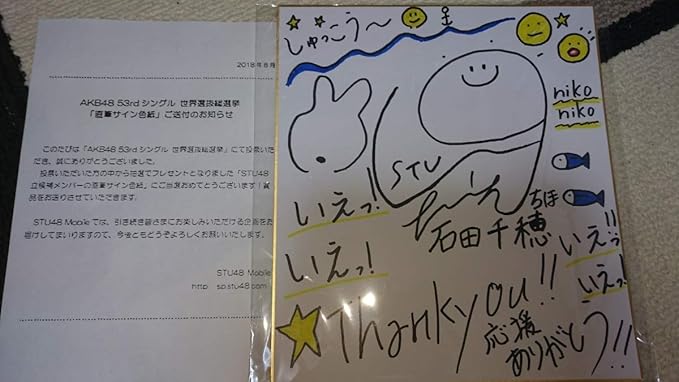 2018年8月
AKB48 53rdシングル 世界選抜総選挙
「直筆サイン色紙」ご送付のお知らせ
このたびは「AKB48 53rdシングル 世界選抜総選挙」にて投票いた
だき、誠にありがとうございました。
投票いただいた方の中から抽選でプレゼントとなりました「STU48
立候補メンバーの直筆サイン色紙」にご当選おめでとうございます！賞
品をお送りさせていただきます。
STU48 Mobileでは、引き続き皆さまにお楽しみいただける企画をお
届けしてまいりますので、今後ともどうぞよろしくお願いいたします。
STU48 Mobile
http sp.stu48.com
しゅっこう〜
niko
niko
STU
ちほ
石田千穂
いえっ!
いえっ!
いえぅ!!
いえっ!
Thankyou!!
応援
ありがとう!!